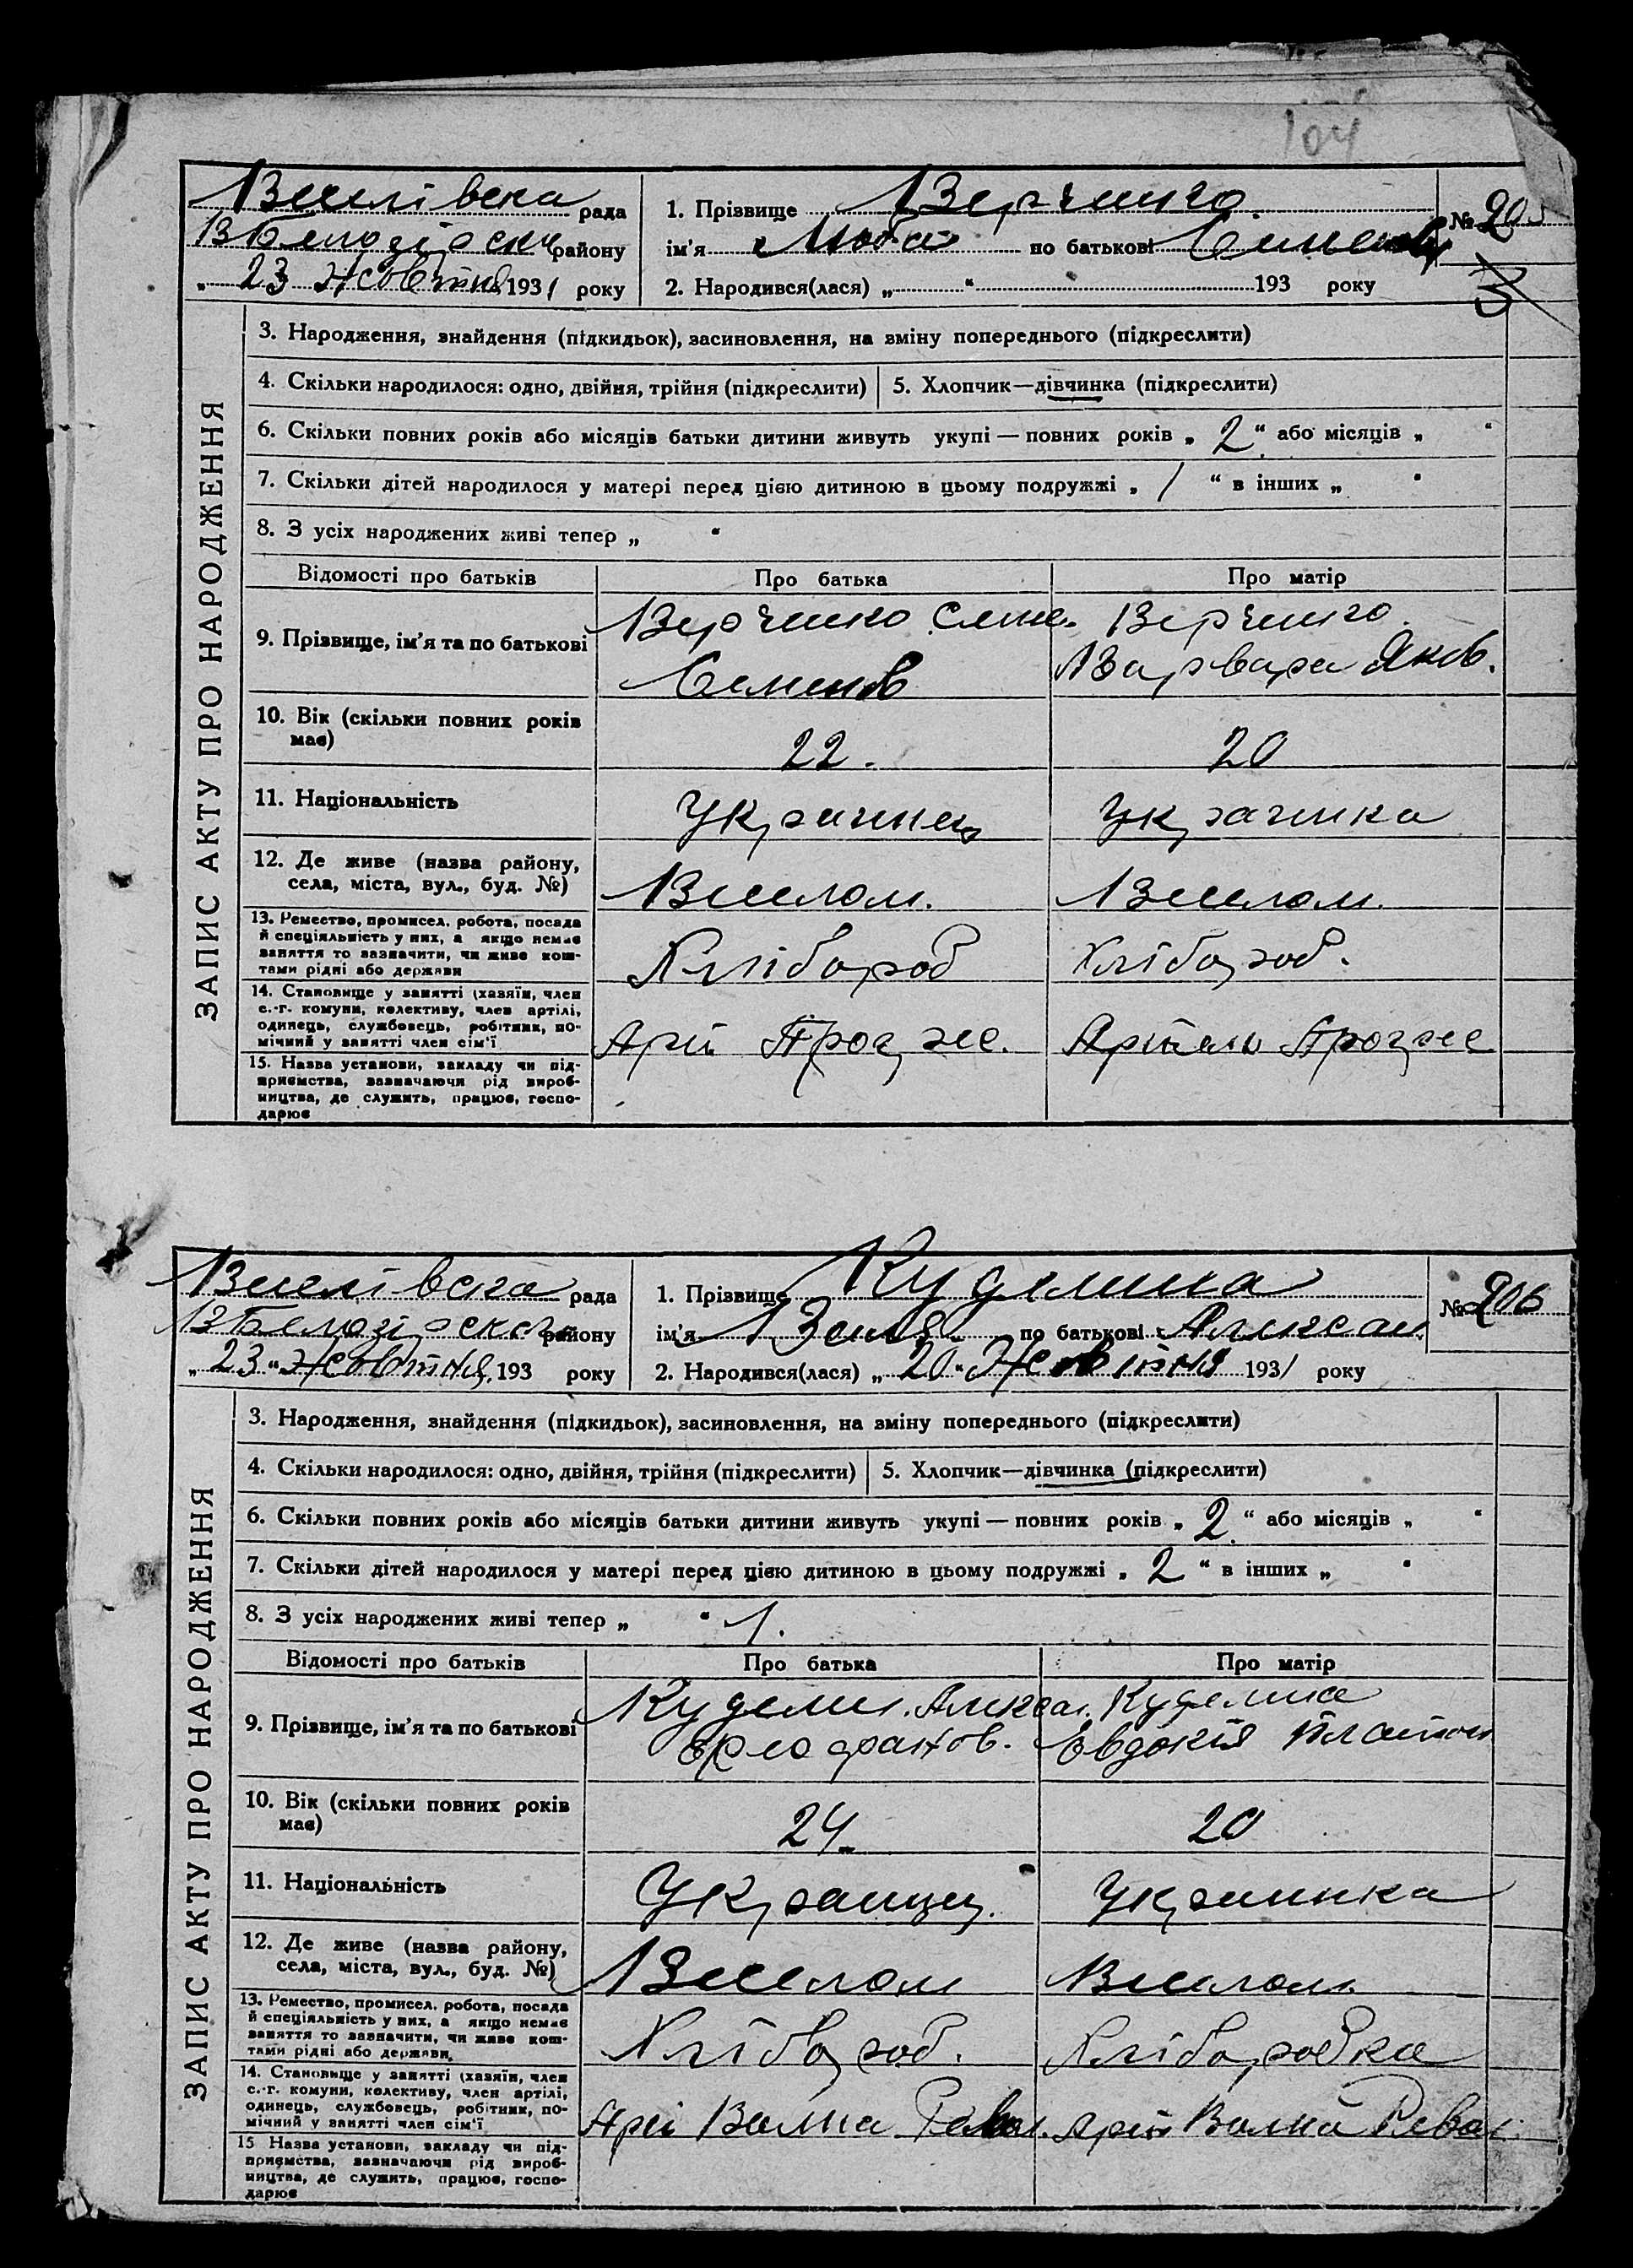 104
Веселівська рада
ВБелозірськ району
„ 23 Жовтня 1931 року
1. Прізвище Верченко.
ім'я Люба по батькові
2. Народився(лася) „ “ 193 року
№ 205
3
ЗАПИС АКТУ ПРО НАРОДЖЕННЯ
3. Народження, знайдення (підкидьок), засиновлення, на зміну попереднього (підкреслити)
4. Скільки народилося: одно, двійня, трійня (підкреслити) 5. Хлопчик—дівчинка (підкреслити)
6. Скільки повних років або місяців батьки дитини живуть укупі — повних років „ 2 “ або місяців „ “
7. Скільки дітей народилося у матері перед цією дитиною в цьому подружжі „ 1 “ в інших „ “
8. З усіх народжених живі тепер „ “
Відомості про батьків Про батька Про матір
9. Прізвище, ім'я та по батькові
Верченко Семе. Верченко.
Семенов Варвара Яков.
10. Вік (скільки повних років має) 22. 20
11. Національність Украинец Украинка
12. Де живе (назва району, села, міста, вул., буд. №) Веселом. Веселом.
13. Ремество, промисел, робота, посада й спеціяльність у них, а якщо немає заняття то зазначити, чи живе коштами рідні або держави
Хлібороб Хлібороб.
14. Становище у занятті (хазяїн, член с.-г. комуни, колективу, член артілі, одинець, службовець, робітник, помічний у занятті член сім'ї
Арті Прогрес. Артель Прогрес
15. Назва установи, закладу чи підприємства, зазначаючи рід виробництва, де служить, працює, господарює
Веселівська рада
ВБелозірськ району
„ 23 “ Жовтня 193 року
1. Прізвище Куделина
ім'я по батькові Алексан.
2. Народився(лася) „ 20 “ Жовтня 1931 року
№ 206
ЗАПИС АКТУ ПРО НАРОДЖЕННЯ
3. Народження, знайдення (підкидьок), засиновлення, на зміну попереднього (підкреслити)
4. Скільки народилося: одно, двійня, трійня (підкреслити) 5. Хлопчик—дівчинка (підкреслити)
6. Скільки повних років або місяців батьки дитини живуть укупі — повних років „ 2 “ або місяців „ “
7. Скільки дітей народилося у матері перед цією дитиною в цьому подружжі „ 2 “ в інших „ “
8. З усіх народжених живі тепер „ “ 1.
Відомості про батьків Про батька Про матір
9. Прізвище, ім'я та по батькові
Куделин. Алексан. Куделина
Евдокія Платон
10. Вік (скільки повних років має) 24 20
11. Національність Украинец. Украинка
12. Де живе (назва району, села, міста, вул., буд. №) Веселом Веселом.
13. Ремество, промисел, робота, посада й спеціяльність у них, а якщо немає заняття то зазначити, чи живе коштами рідні або держави.
Хлібороб. Хліборобка
14. Становище у занятті (хазяїн, член с.-г. комуни, колективу, член артілі, одинець, службовець, робітник, помічний у занятті член сім'ї
Арті ВолнаРевол. Арті Волна Револ.
15 Назва установи, закладу чи підприємства, зазначаючи рід виробництва, де служить, працює, господарює